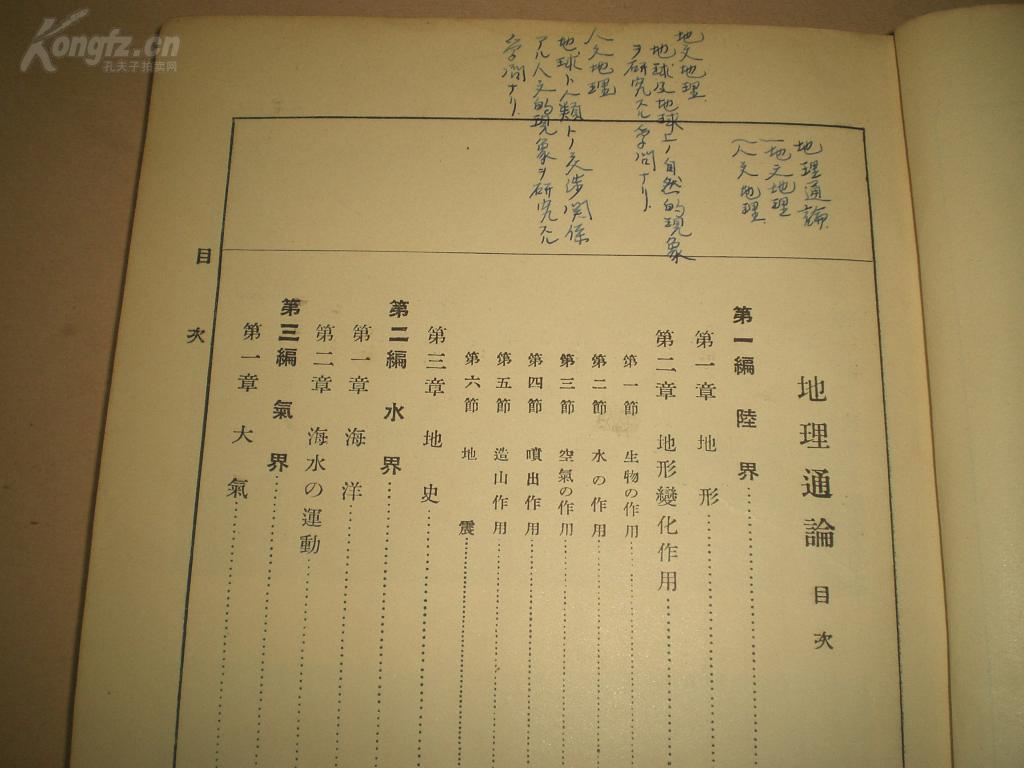 Kongfz.cn
孔夫子拍卖网
地文地理
地球及地球上ノ自然的現象
ヲ研究スル学問ナリ.
人文地理
地球ト人類トノ交渉関係
アル人文的現象ヲ研究スル
学問ナリ.
地理通論.
地文地理
人文地理.
地理通論 目次
第一編 陸界
第一章 地形
第二章 地形變化作用
第一節 生物の作用
第二節 水の作用
第三節 空氣の作用
第四節 噴出作用
第五節 造山作用
第六節 地震
第三章 地史
第二編 水界
第一章 海洋
第二章 海水の運動
第三編 氣界
第一章 大氣
目次